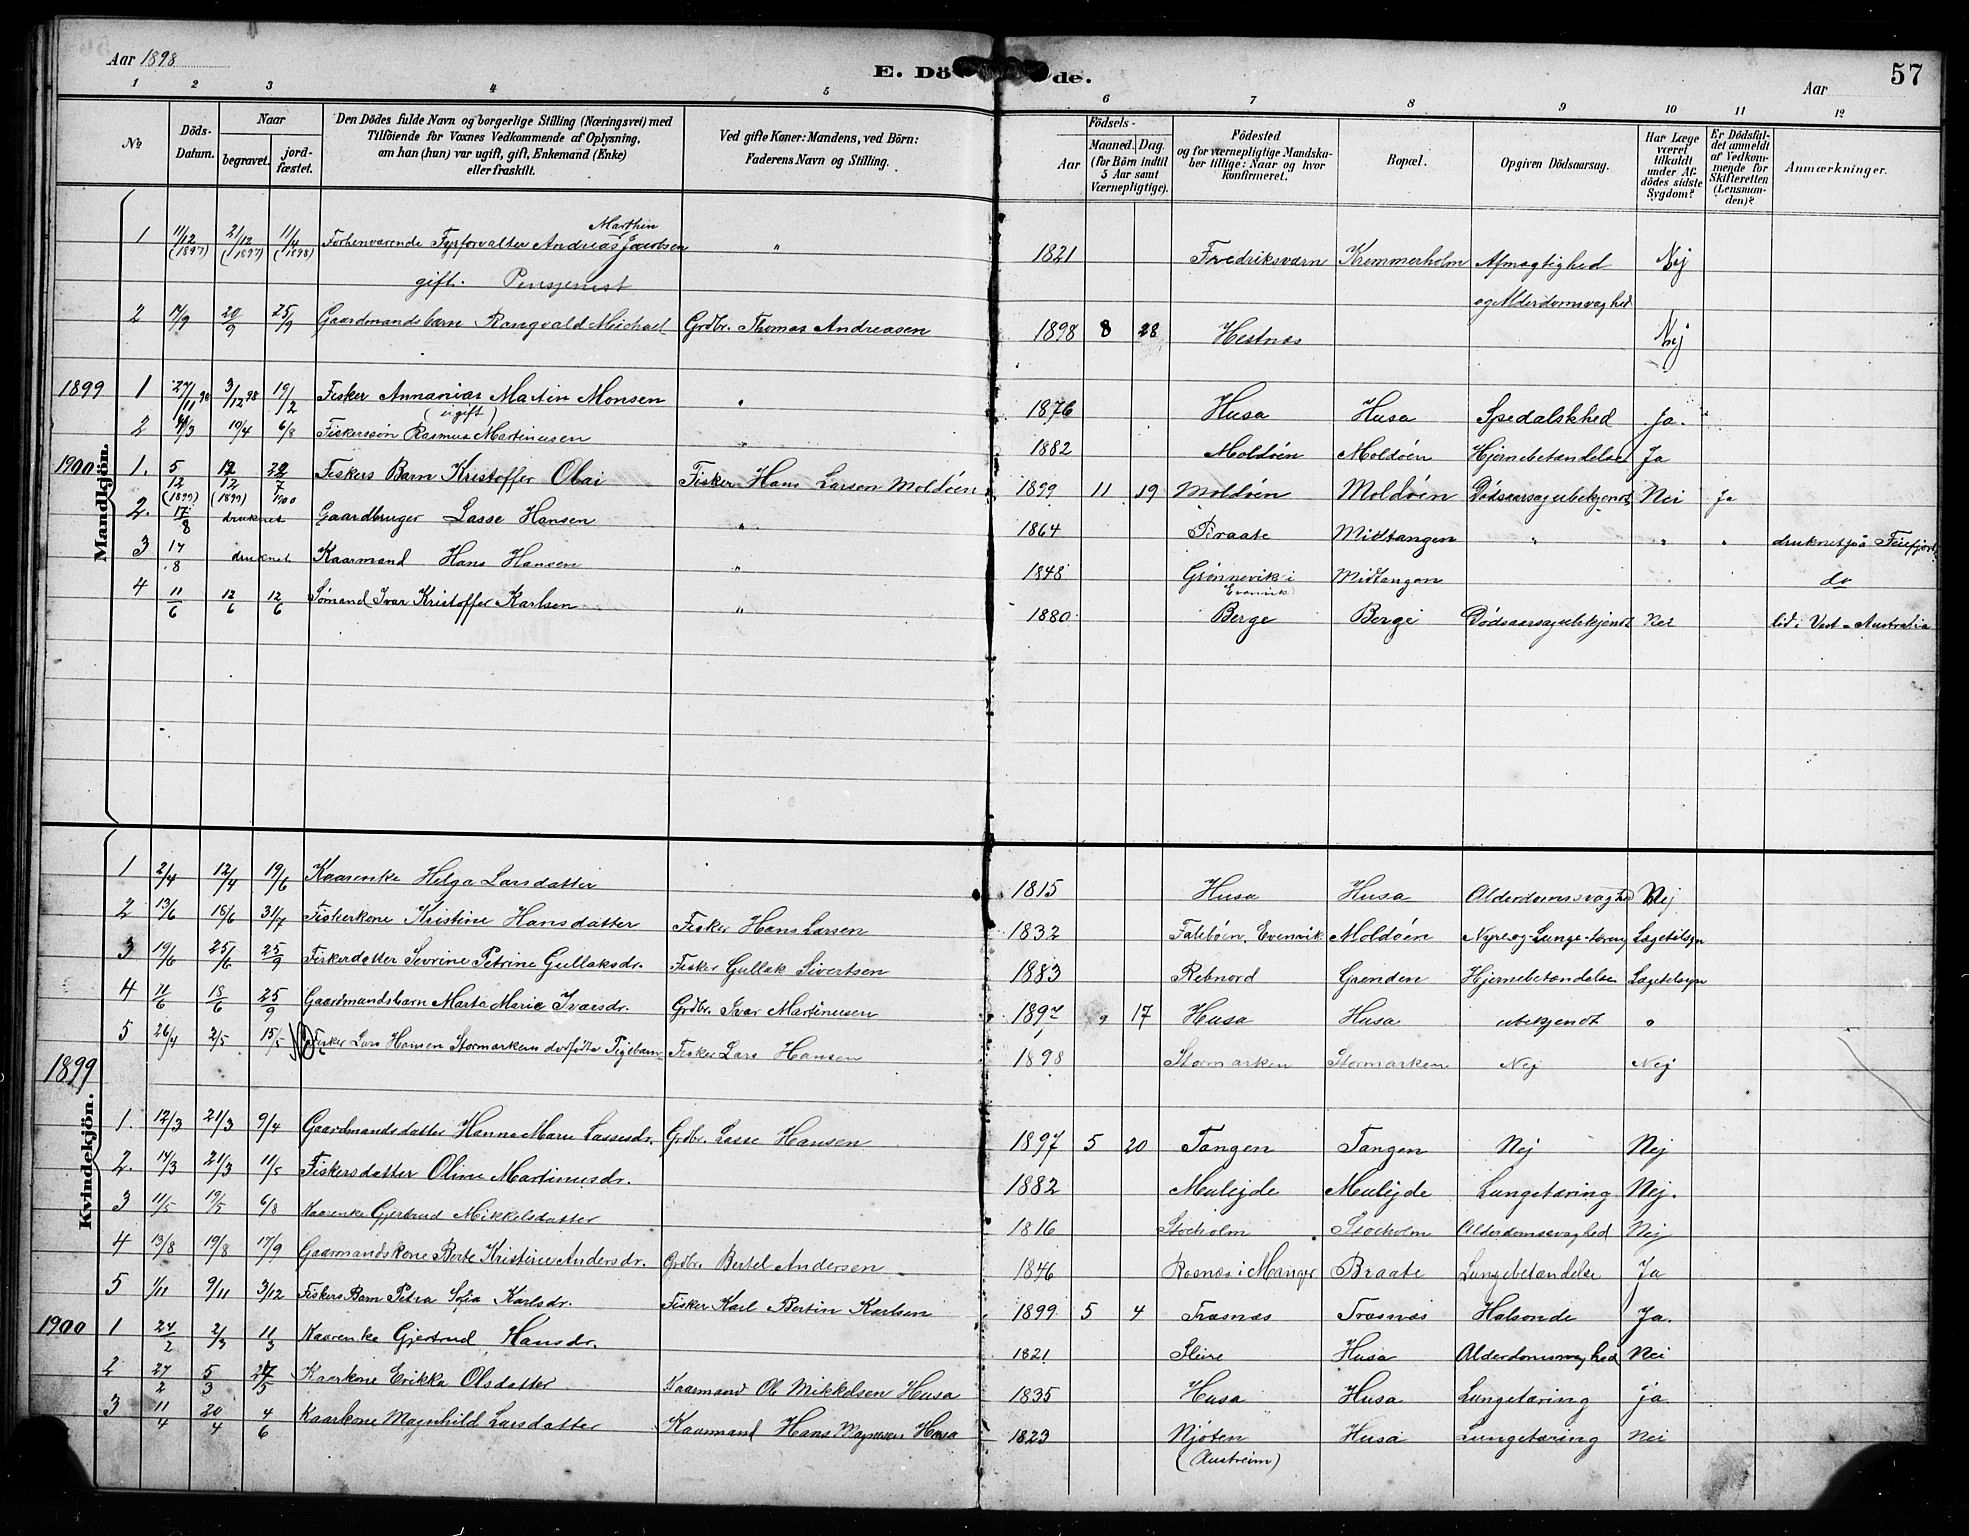 Aar 1898
E. Döde.
Aar
57
1 2 3 4 5 6 7 8 9 10 11 12
№
Döds-Datum.
Naar
begravet.
jordfæstet.
Den Dödes fulde Navn og borgerlige Stilling (Næringsvei) med Tilföiende for Voxnes Vedkommende af Oplysning, om han (hun) var ugift, gift, Enkemand (Enke) eller fraskilt.
Ved gifte Koner: Mandens, ved Börn: Faderens Navn og Stilling.
Födsels-
Aar
Maaned. Dag.
(for Börn indtil 5 Aar samt Værnepligtige).
Födested og for værnepligtige Mandskaber tillige: Naar og hvor konfirmeret.
Bopæl.
Opgiven Dödsaarsag.
Har Læge været tilkaldt under Afdödes sidste Sygdom?
Er Dödsfaldet anmeldt af Vedkommende for Skifteretten (Lensmanden)?
Anmærkninger.
Mandkjön.
1 11/12 (1897) 21/12 (1897) 11/4 (1898) Forhenværende Fyrforvalter Andreas Marthin Jacobsen " 1821 Fredriksværn Kremmerholm Afmægtighed Nej
gift. Pensjonist og Alderdomsvaghed
2 14/9 20/9 25/9 Gaardmandsbarn Rangvald Michael Grdbr. Thomas Andreasen 1898 8 28 Hestnæs Nej
1899 1 27/11 98 3/12 98 19/2 Fisker Annanias Martin Monsen " 1876 Husa Husa Spedalskhed Ja.
(ugift)
2 /3 19/4 6/8 Fiskersøn Rasmus Martinusen " 1882 Moldøen Moldøen Hjernebetændelse Ja
1900 1. 5/12 (1899) 17/12 (1899) 22/7 1900 Fiskers Barn Kristoffer Olai Fisker Hans Larsen Moldøen 1899 11 19 Moldøen Moldøen Dødsaarsag ubekjendt Nei ja
2. 17/8 druknet Gaardbruger Lasse Hansen " 1864 Braate Midtangen " " " druknet på Feiefjord
3 17/8 druknet Kaarmand Hans Hansen " 1848 Grønnevik i Evenvik Midtangen do
4 11/6 12/6 12/6 Sømand Ivar Kristoffer Karlsen " 1880 Berge Berge Dødsaarsag ubekjendt Nei død i Vest-Australia
Kvindekjön.
1 2/4 12/4 19/6 Kaarenke Helga Larsdatter 1815 Husa Husa Alderdomssvaghed Nej
2 13/6 18/6 31/7 Fiskerkone Kristine Hansdatter Fisker Hans Larsen 1832 Evenvik Moldøen Nyre og Lunge-tæring Lægetilsyn
3 19/6 25/6 25/9 Fiskerdatter Sevrine Petrine Gullaksdr. Fisker Gullak Sivertsen 1883 Rebnord Grenden Hjernebetændelse Lægetilsyn
4 11/6 18/6 25/9 Gaardmandsbarn Marta Marie Ivarsdr. Grdbr. Ivar Martinusen 1897 9 17 Husa Husa ubekjendt "
5 26/4 2/5 15/5 Fisker Lars Hansen Stormarkens dødfødte Pigebarn Fisker Lars Hansen 1898 Stormarken Stormarken Nej Nej
1899
1. 12/3 21/3 9/4 Gaardmandsdatter Hanna Marie Lassesdr. Grdbr. Lasse Hansen 1897 5 20 Tangen Tangen Nej Nej
2. 14/3 21/3 11/5 Fiskersdatter Oline Martinusdr. 1882 Mulejde Mulejde Lungetæring Nej.
3 11/5 19/5 6/8 Kaarenke Gjertrud Mikkelsdatter 1816 Stocholm Stocholm Alderdomssvaghed Nej
4 13/8 19/8 17/9 Gaarmandskone Berte Kristine Andersdr. Grdbr. Bertel Andersen 1846 Rosnæs i Manger Braate Lungebetændelse Ja
5 1/11 9/11 3/12 Fiskers Barn Petra Sofia Karlsdr. Fisker Karl Bertin Karlsen 1899 5 4 Træsnæs Træsnæs Halsonde Ja.
1900 1 24/2 2/3 11/3 Kaarenke Gjertrud Hansdr. 1821 Slire Husa Alderdomssvaghed Nei
2 27/2 5/3 27/5 Kaarkone Erikka Olsdatter Kaarmand Ole Mikkelsen Husa 1835 Husa Husa Lungetæring ja
3 11/4 20/4 4/6 Kaarkone Magnhild Larsdatter Kaarmand Hans Magnusen Husa 1823 Njøten Husa Lungetæring Nei
(Austreim)